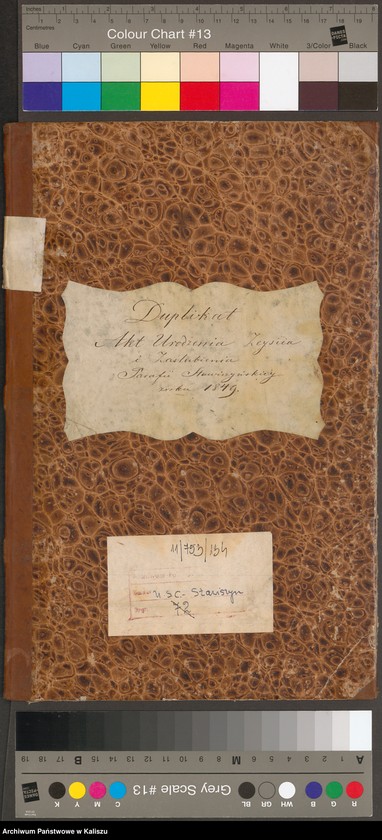 Inches 1 2 3 4 5 6 7 8
Centimetres 1 2 3 4 5 6 7 8 9 10 11 12 13 14 15 16 17 18 19
Colour Chart #13
Blue Cyan Green Yellow Red Magenta White 3/Color Black
DANES PICTA
Duplikat
Akt Urodzenia Zeyścia
i Zaślubienia
Parafii Stawiszyńskiej
roku 1849.
11/753/134
USC. Stawiszyn
72
19 18 17 16 15 14 13 12 11 10 9 8 7 6 5 4 3 2 1
B M A
Grey Scale #13
K Y M C BL GR WH B G R
Archiwum Państwowe w Kaliszu